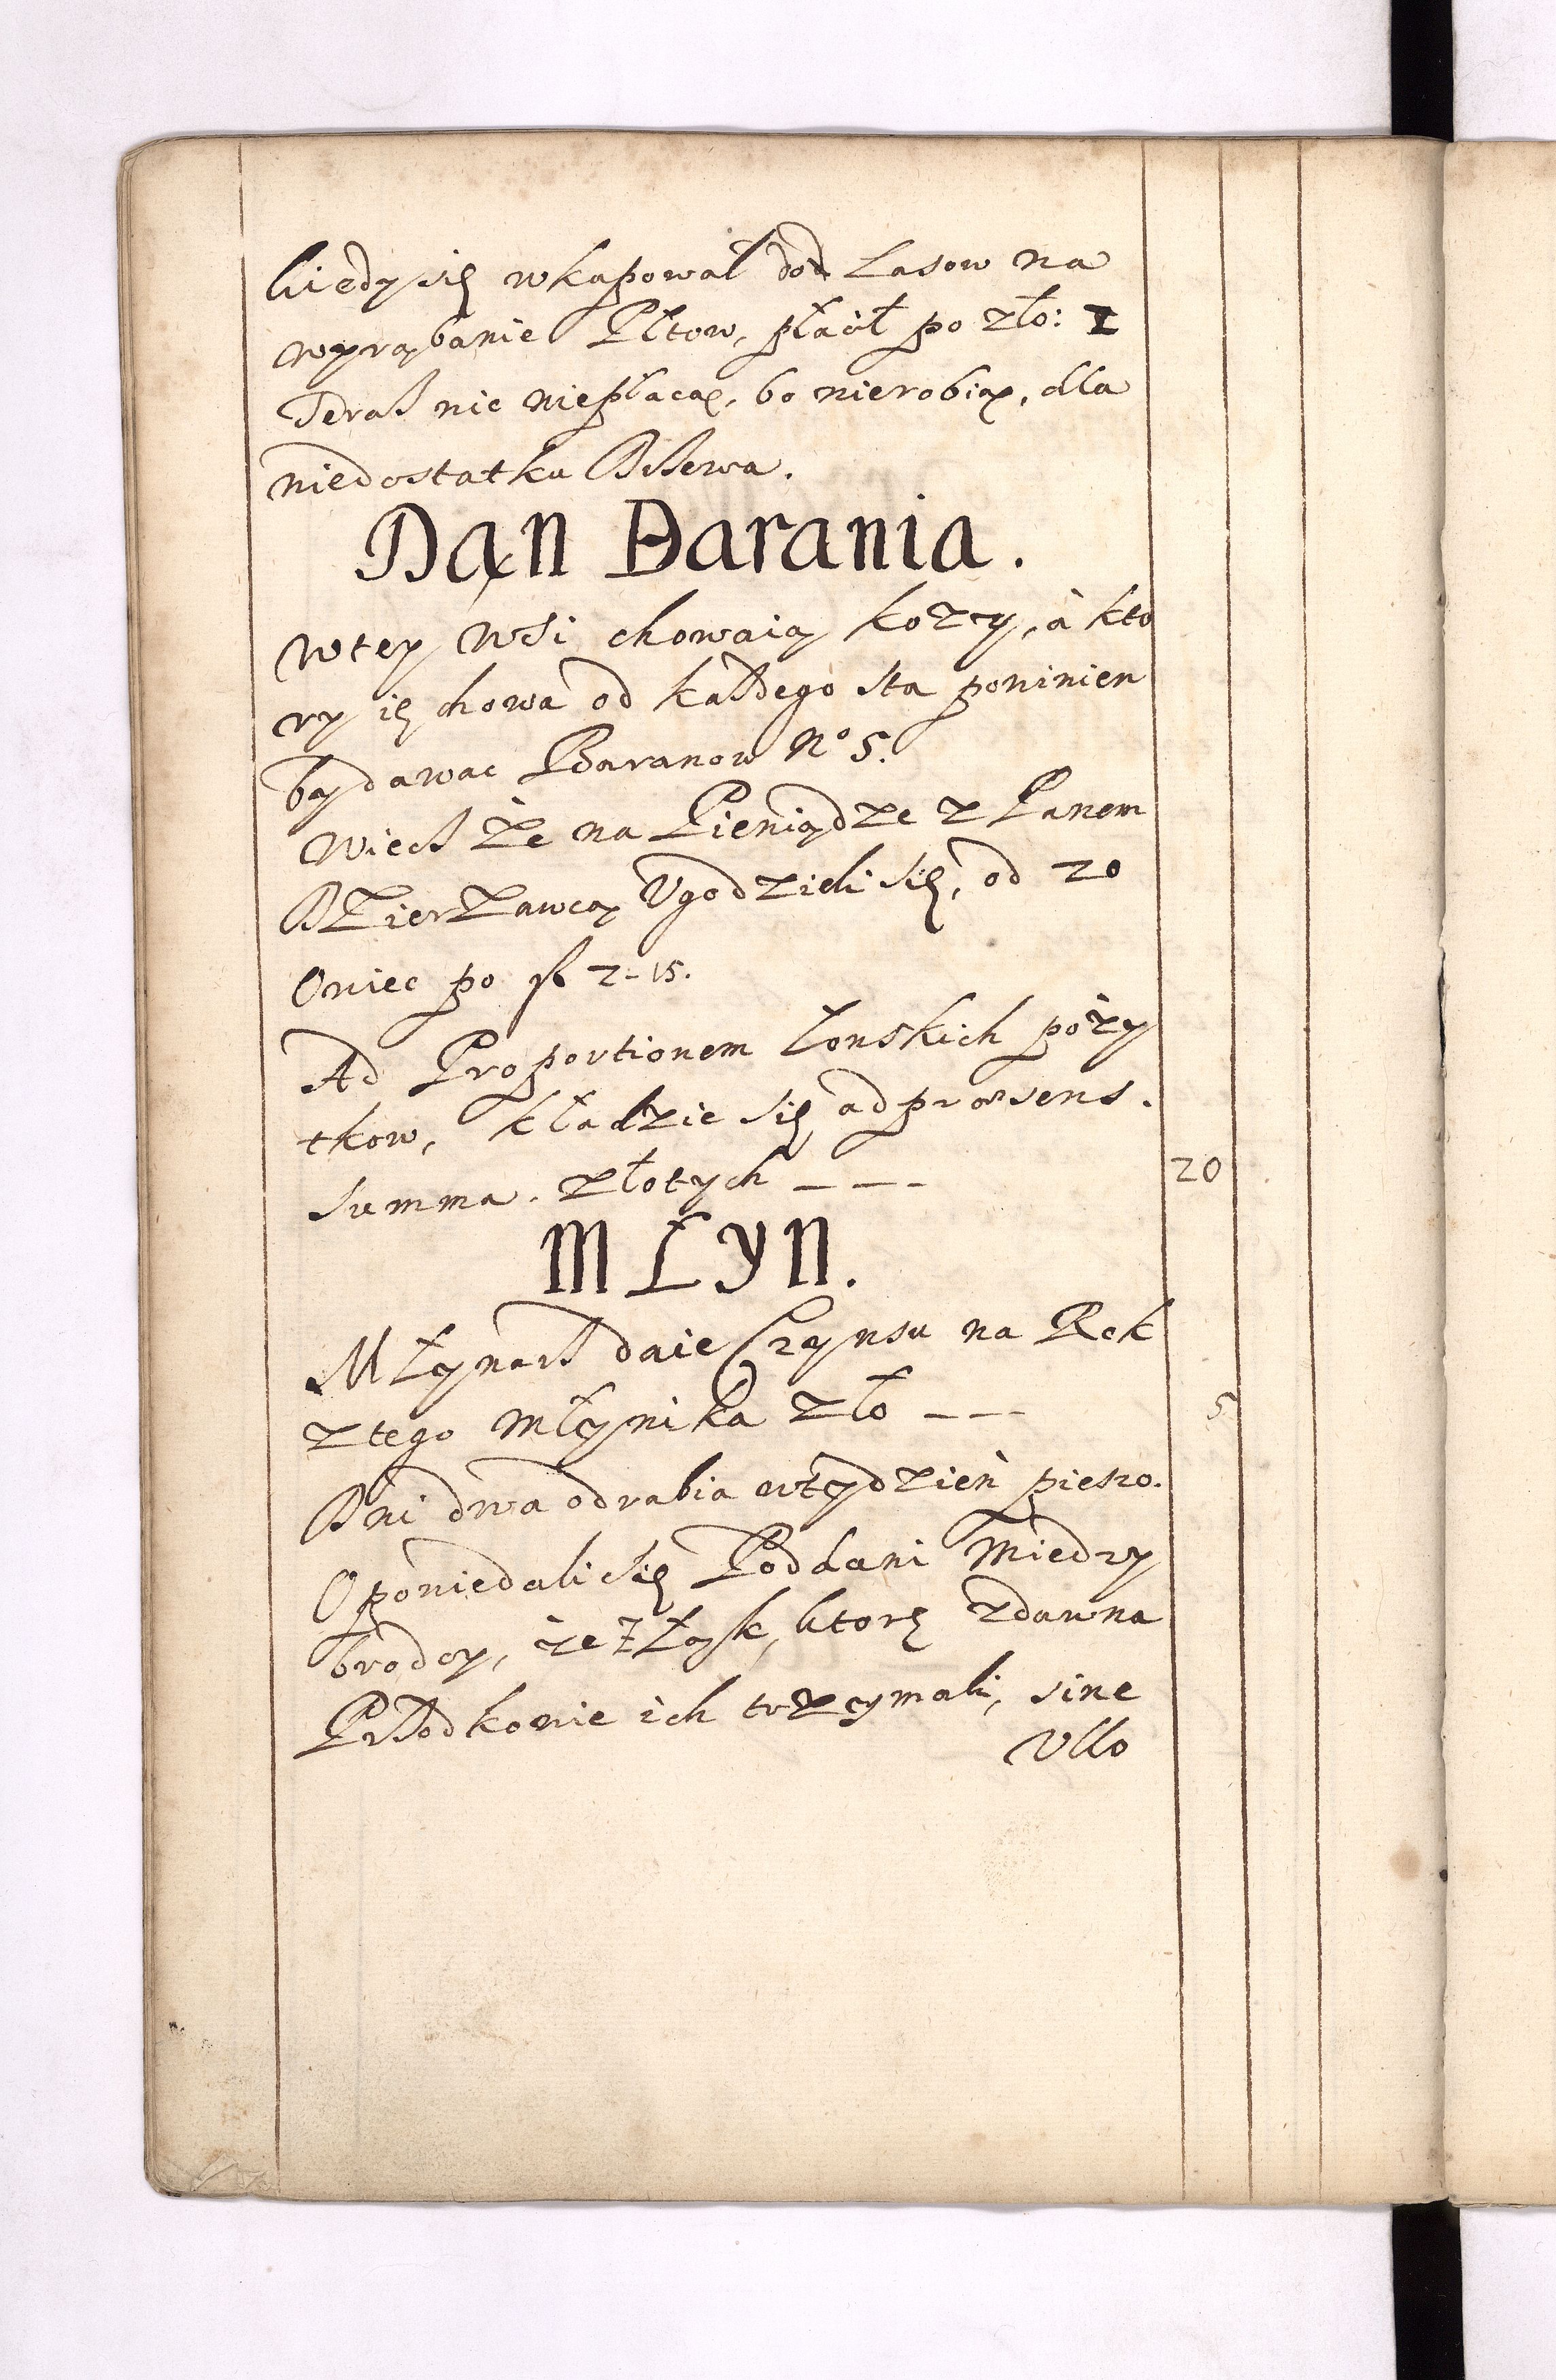 kiedy się wkapował do Lasow na
wyrąbanie Płtow, płacił po zło: 1
Teraz nic niepłacą, bo nierobią, dla
niedostatku Drzewa.
Dąn Barania.
wtey wsi chowaią kozy, à kto
ry ię chowa od każdego sta powinien
bydawac Baranow No 5.
Wiecz że na Pieniądze z Panem
Dzierzawcą Vgodzieli się, od 20
Owiec po fl 2-15.
Ad Proportionem Łonskich poży
tkow, kładzie się ad præsens.
summa. złotych _ _ _ 20
MŁYN.
Młynarz daie Czynsu na Rok
ztego młynika zło _ _ 5
Dni dwa odrabia wtydzień pieszo.
Opowiedali się Poddani Miedzy
brodcy, że z Łąk, ktorę zdawna
Przodkowie ich trzymali, sine
Vllo